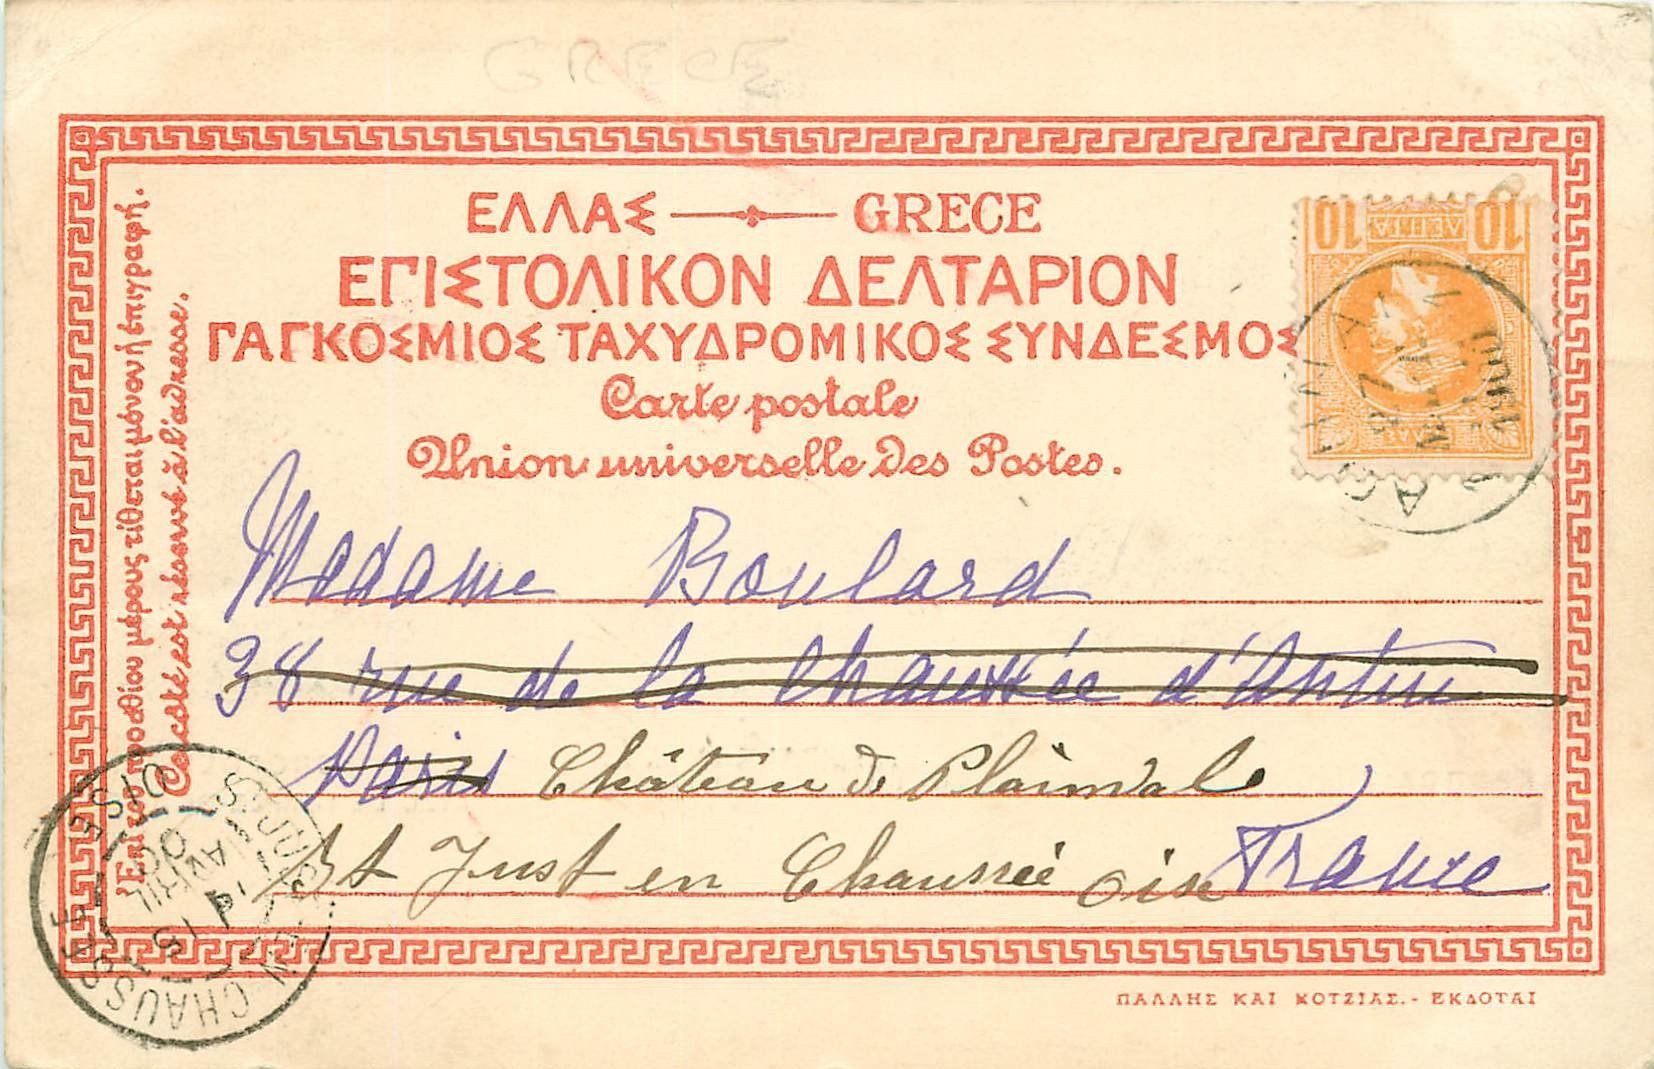 GRECE
ΕΛΛΑΣ GRECE
ΕΠΙΣΤΟΛΙΚΟΝ ΔΕΛΤΑΡΙΟΝ
ΠΑΓΚΟΣΜΙΟΣ ΤΑΧΥΔΡΟΜΙΚΟΣ ΣΥΝΔΕΣΜΟΣ
Carte postale
Union universelle des Postes.
Ἐπὶ τοῦ προσθίου μέρους τίθεται μόνον ἡ ἐπιγραφή.
Ce côté est réservé à l'adresse.
10 ΛΕΠΤΑ 10
1900
Madame Boulard
38 rue de la Chaussée d'Antin
Paris Château de Plainval
St Just en Chaussée Oise France
ST JUST EN CHAUSSEE OISE
14 AVRIL 00
ΠΑΛΛΗΣ ΚΑΙ ΚΟΤΖΙΑΣ.- ΕΚΔΟΤΑΙ